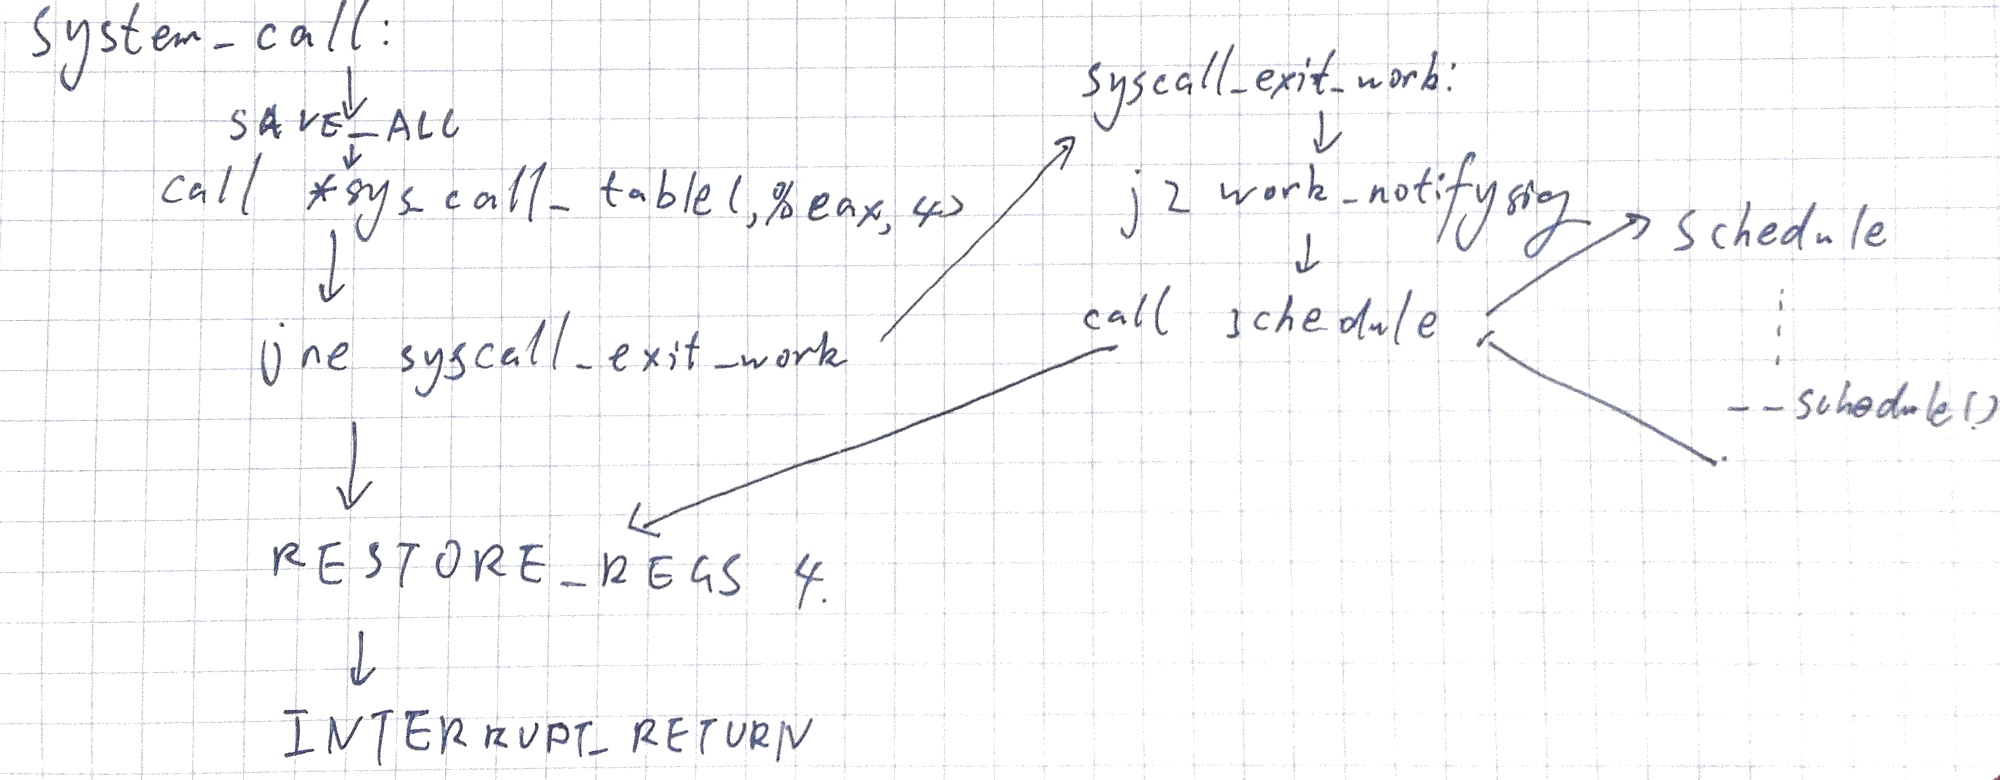 system_call:
SAVE_ALL
call *sys_call_table(,%eax,4)
jne syscall_exit_work
RESTORE_REGS 4.
INTERRUPT_RETURN
syscall_exit_work:
jz work_notifysig
call schedule
schedule
--schedule()